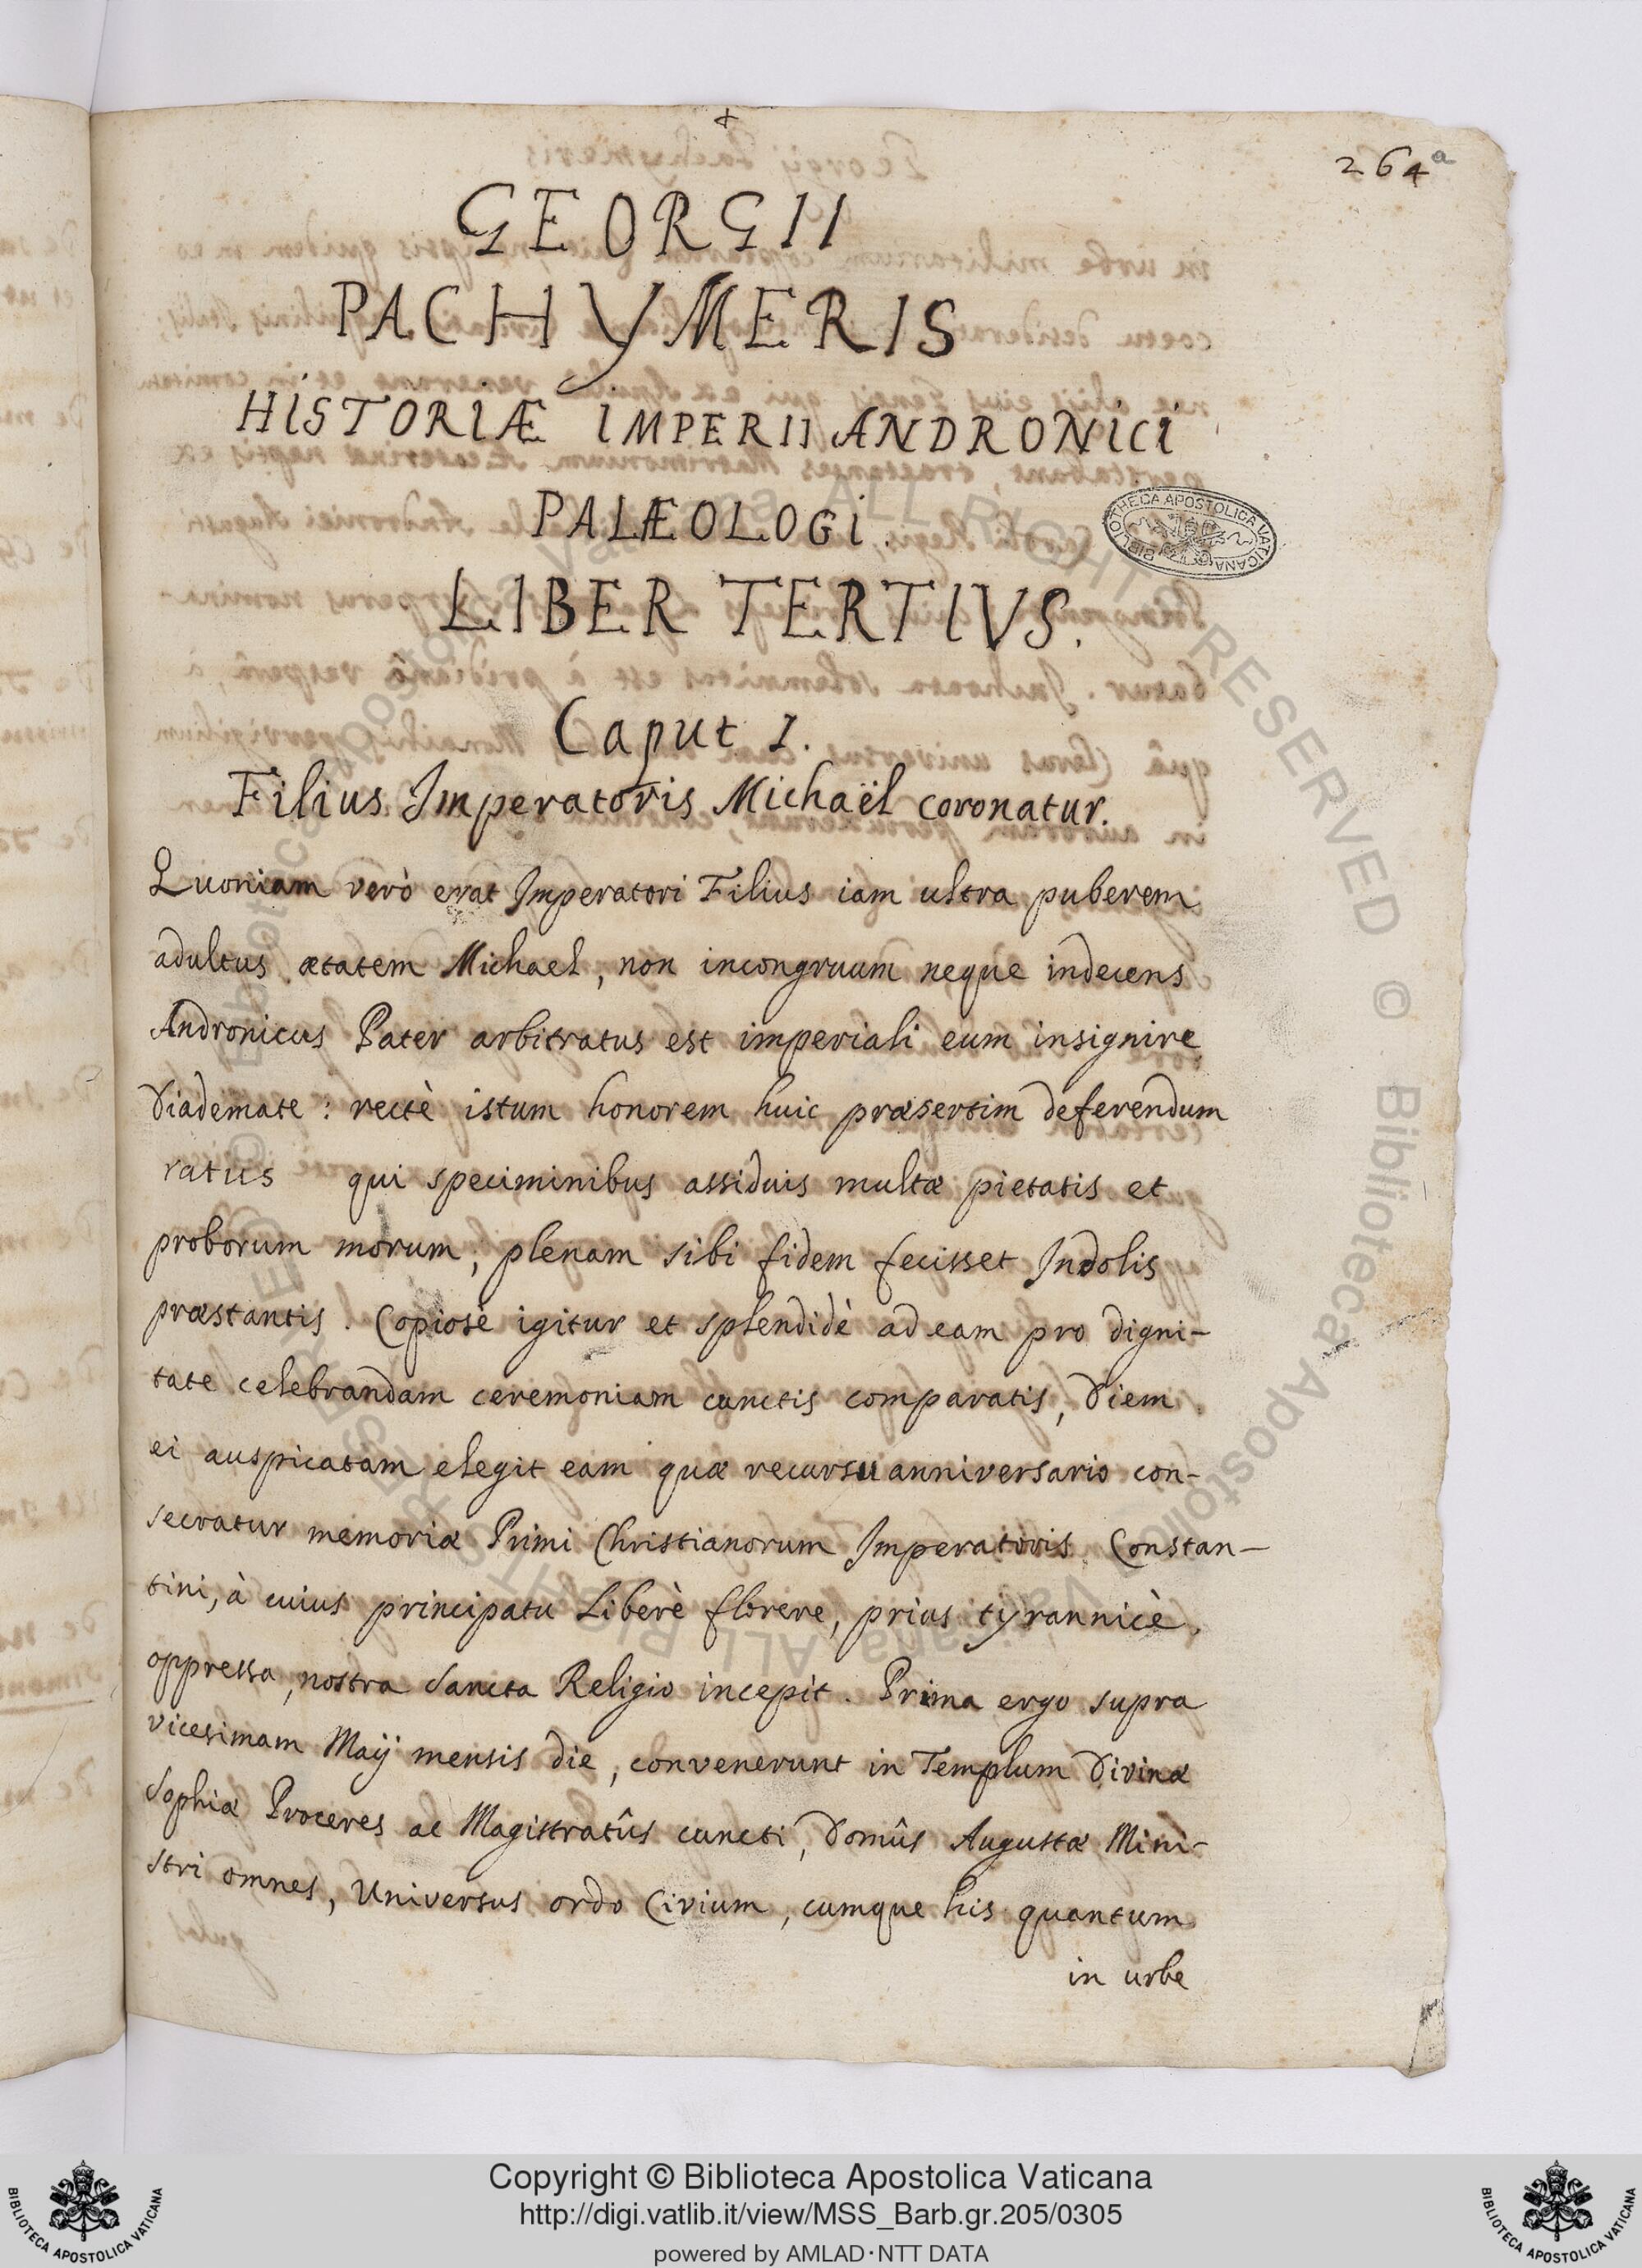 264a
GEORGII
PACHYMERIS
HISTORIÆ IMPERII ANDRONICI
PALÆOLOGI.
LIBER TERTIVS.
Caput I.
Filius Imperatoris Michaël coronatur.
Quoniam verò erat Imperatori Filius iam ultra puberem
adultus ætatem Michael, non incongruum neque indecens
Andronicus Pater arbitratus est imperiali eum insignire
Diademate: rectè istum honorem huic præsertim deferendum
ratus qui speciminibus assiduis multæ pietatis et
proborum morum, plenam sibi fidem fecisset Indolis
præstantis. Copiosè igitur et splendidè ad eam pro digni-
tate celebrandam ceremoniam cunctis comparatis, Diem
ei auspicatam elegit eam quæ recursu anniversario con-
secratur memoriæ Primi Christianorum Imperatoris Constan-
tini, à cuius principatu Liberè florere, prius tyrannicè
oppressa, nostra Sancta Religio incepit. Prima ergo supra
vicesimam Maij mensis die, convenerunt in Templum Divinæ
Sophiæ Proceres ac Magistratûs cuncti, Domûs Augustæ Mini-
stri omnes, Universus ordo Civium, cumque his quantum
in urbe
BIBLIOTHECA APOSTOLICA VATICANA
© Biblioteca Apostolica Vaticana ALL RIGHTS RESERVED
© Biblioteca Apostolica Vaticana ALL RIGHTS RESERVED
Copyright © Biblioteca Apostolica Vaticana
http://digi.vatlib.it/view/MSS_Barb.gr.205/0305
powered by AMLAD·NTT DATA
BIBLIOTECA APOSTOLICA VATICANA
BIBLIOTECA APOSTOLICA VATICANA